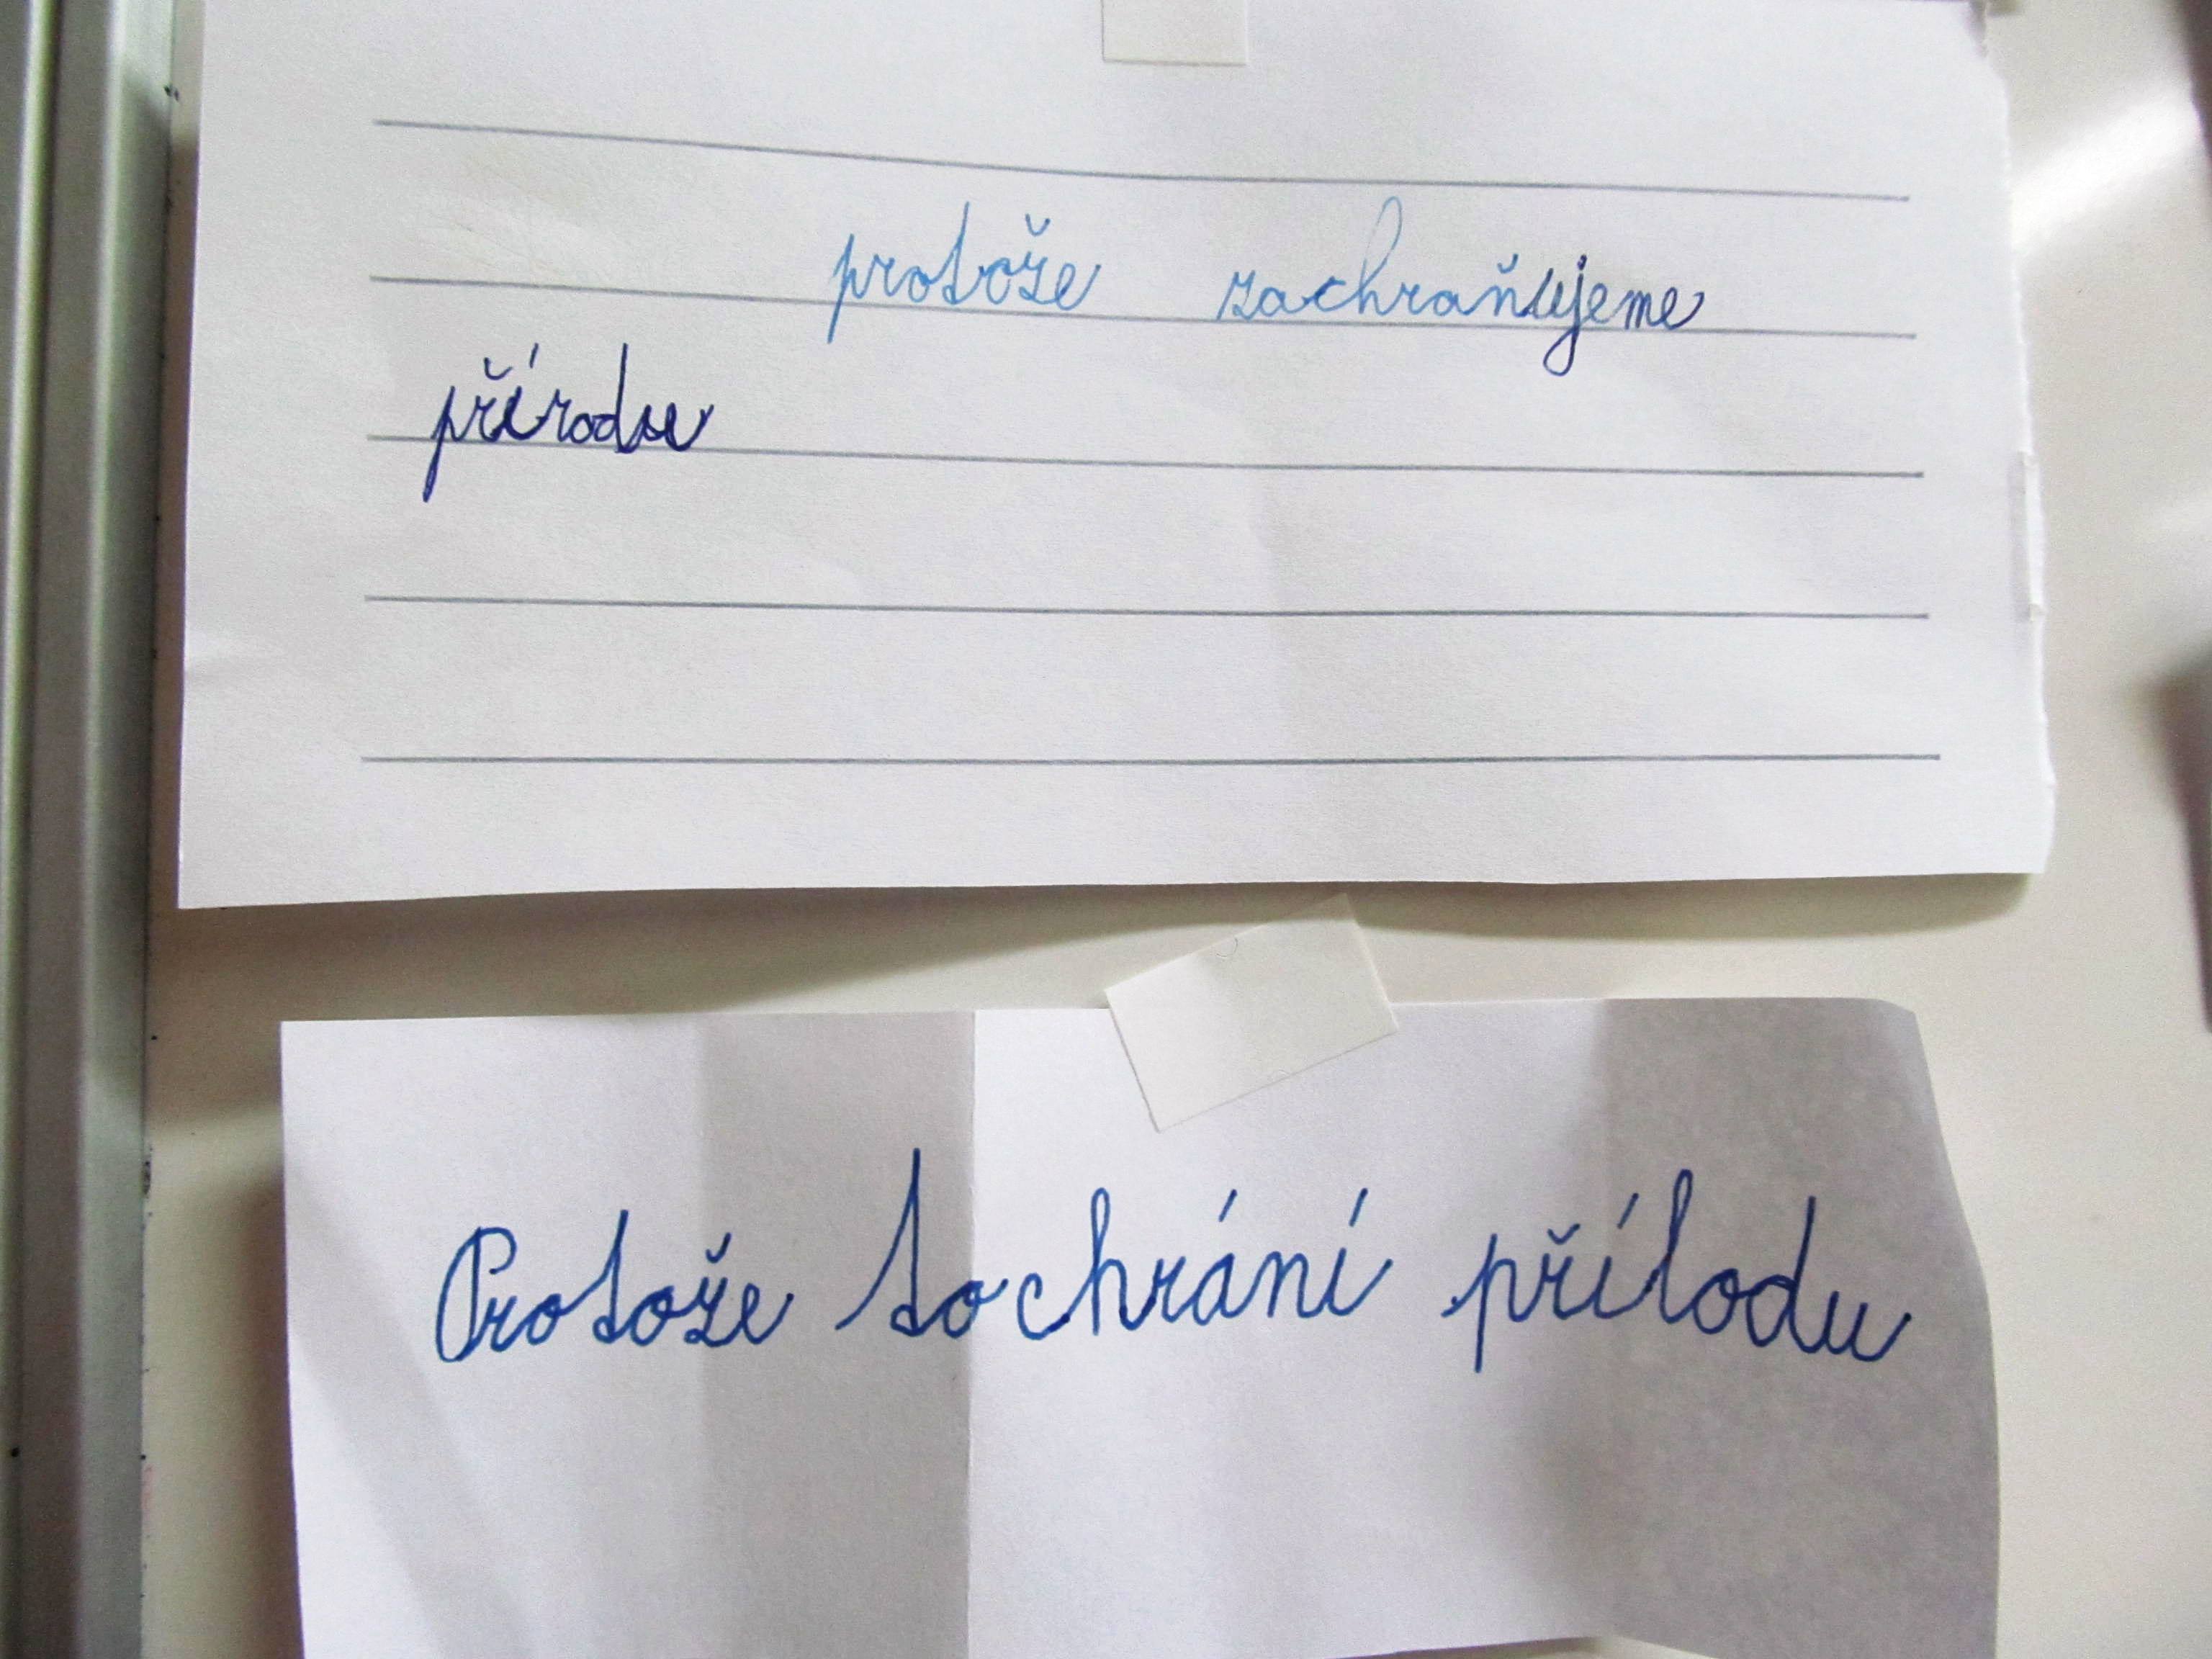 protože zachraňujeme
přírodu
Protože to chrání přílodu